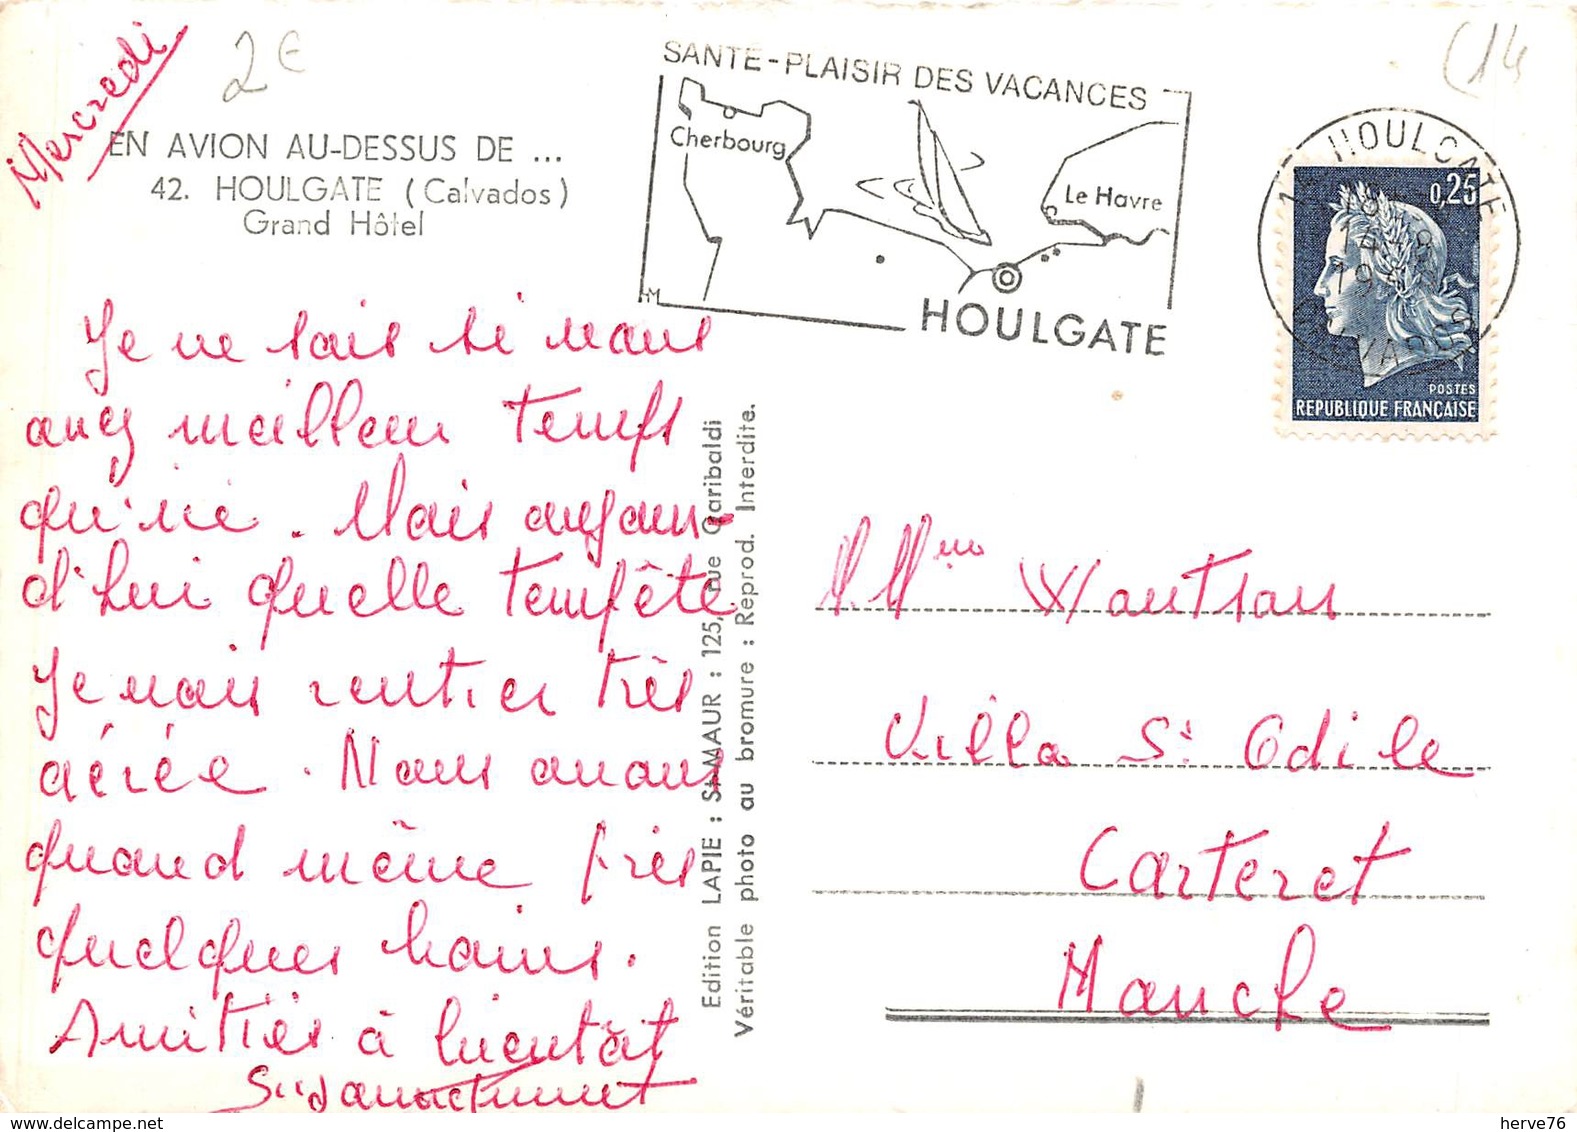 Mercredi
2€
(14
EN AVION AU-DESSUS DE ...
42. HOULGATE (Calvados)
Grand Hôtel
SANTE-PLAISIR DES VACANCES
Cherbourg
Le Havre
HM
HOULGATE
HOULGATE
0,25
POSTES
REPUBLIQUE FRANÇAISE
Je ne sais si vous
avez meilleur temps
qu'ici. Mais aujour-
d'hui quelle tempête
Je vais rentrer très
aérée. Nous avons
quand même pris
quelques bains.
Amitiés à bientôt
Edition LAPIE : St-MAUR : 125, rue Garibaldi
Véritable photo au bromure : Reprod. Interdite.
Mme Wautran
Villa St Odile
Carteret
Manche
herve76